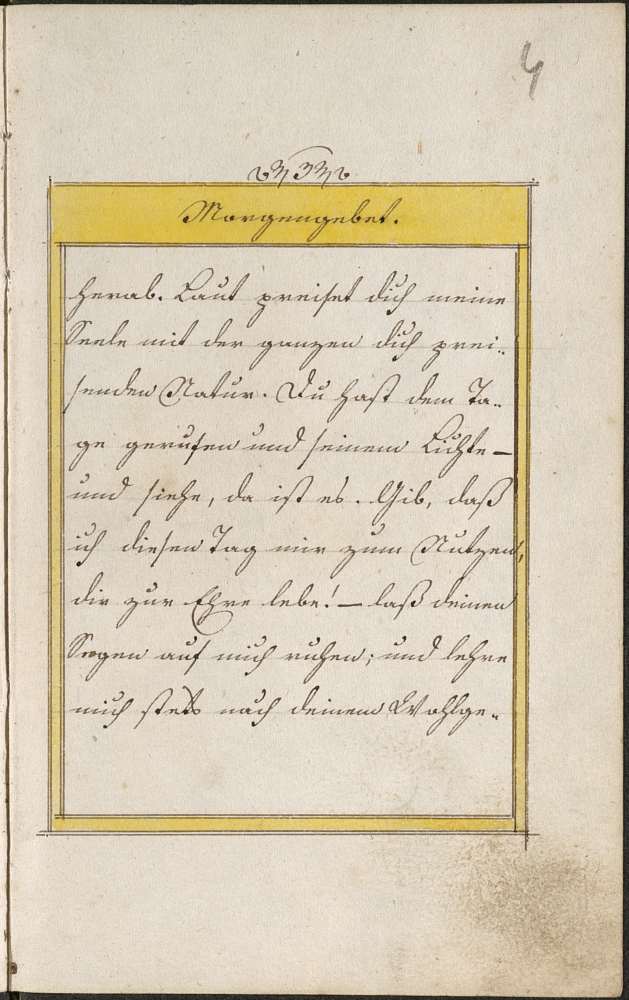 4
Morgengebet.
herab. Laut preiset dich meine
Seele mit der ganzen dich prei-
senden Natur. Du hast dem Ta-
ge gerufen und seinem Lichte —
und siehe, da ist es. Gib, daß
ich diesen Tag mir zum Nutzen,
dir zur Ehre lebe! — laß deinen
Segen auf mich ruhen; und lehre
mich stets nach deinem Wohlge-